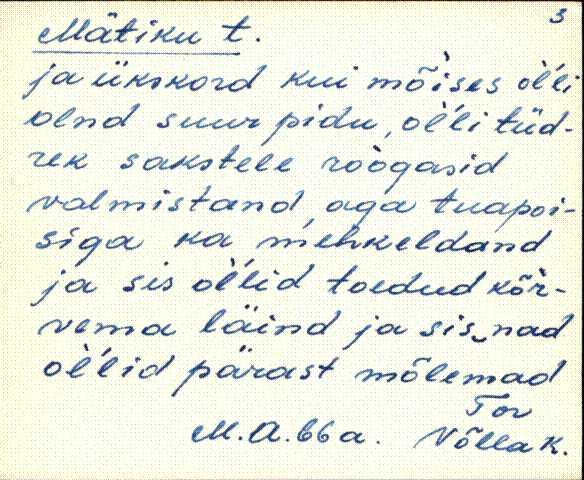 3
Mätiku t.
ja ükskord kui mõ̀ises òĺli
olnd suur pidu, òĺli tüd-
rek sakstele ròògasid
valmistand, aga tuapoi-
siga ka mehkeldand
ja sis òĺlid toedud kõr̀-
vema läind ja sis‿nad
òĺlid pärast mõlemad
Tor
M.A. 66 a. Võlla k.